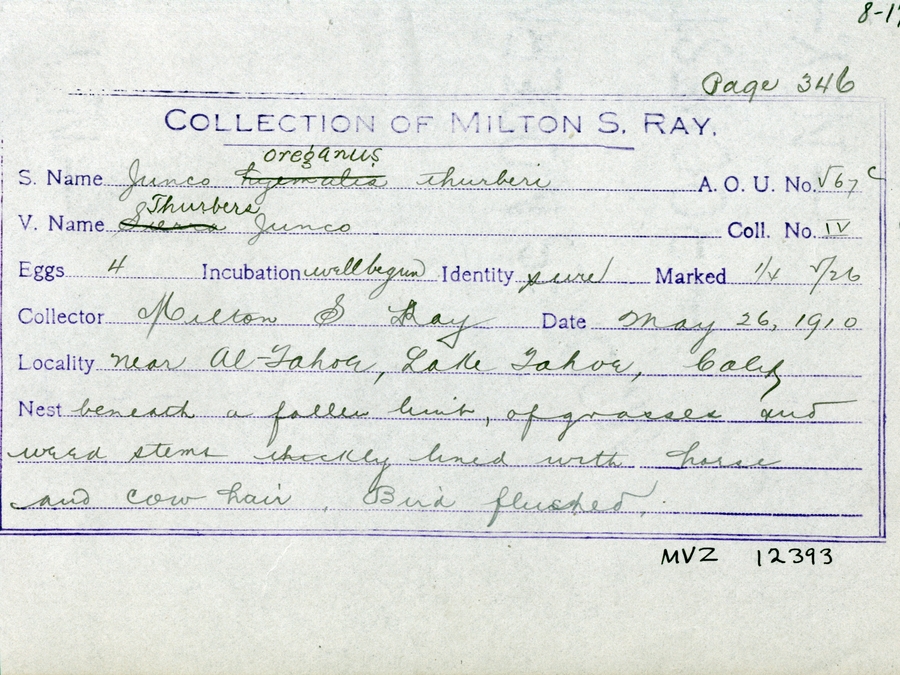 8-17
Page 346
COLLECTION OF MILTON S. RAY.
oreganus
S. Name Junco hyemalis thurberi A. O. U. No. 567 c
Thurbers
V. Name Sierra Junco Coll. No. IV
Eggs 4 Incubation well begun Identity sure Marked 1/4 5/26
Collector Milton S Ray Date May 26, 1910
Locality near Al-Tahoe, Lake Tahoe, Calif
Nest beneath a fallen limb, of grasses and
weed stems thickly lined with horse
and cow hair. Bird flushed.
MVZ 12393